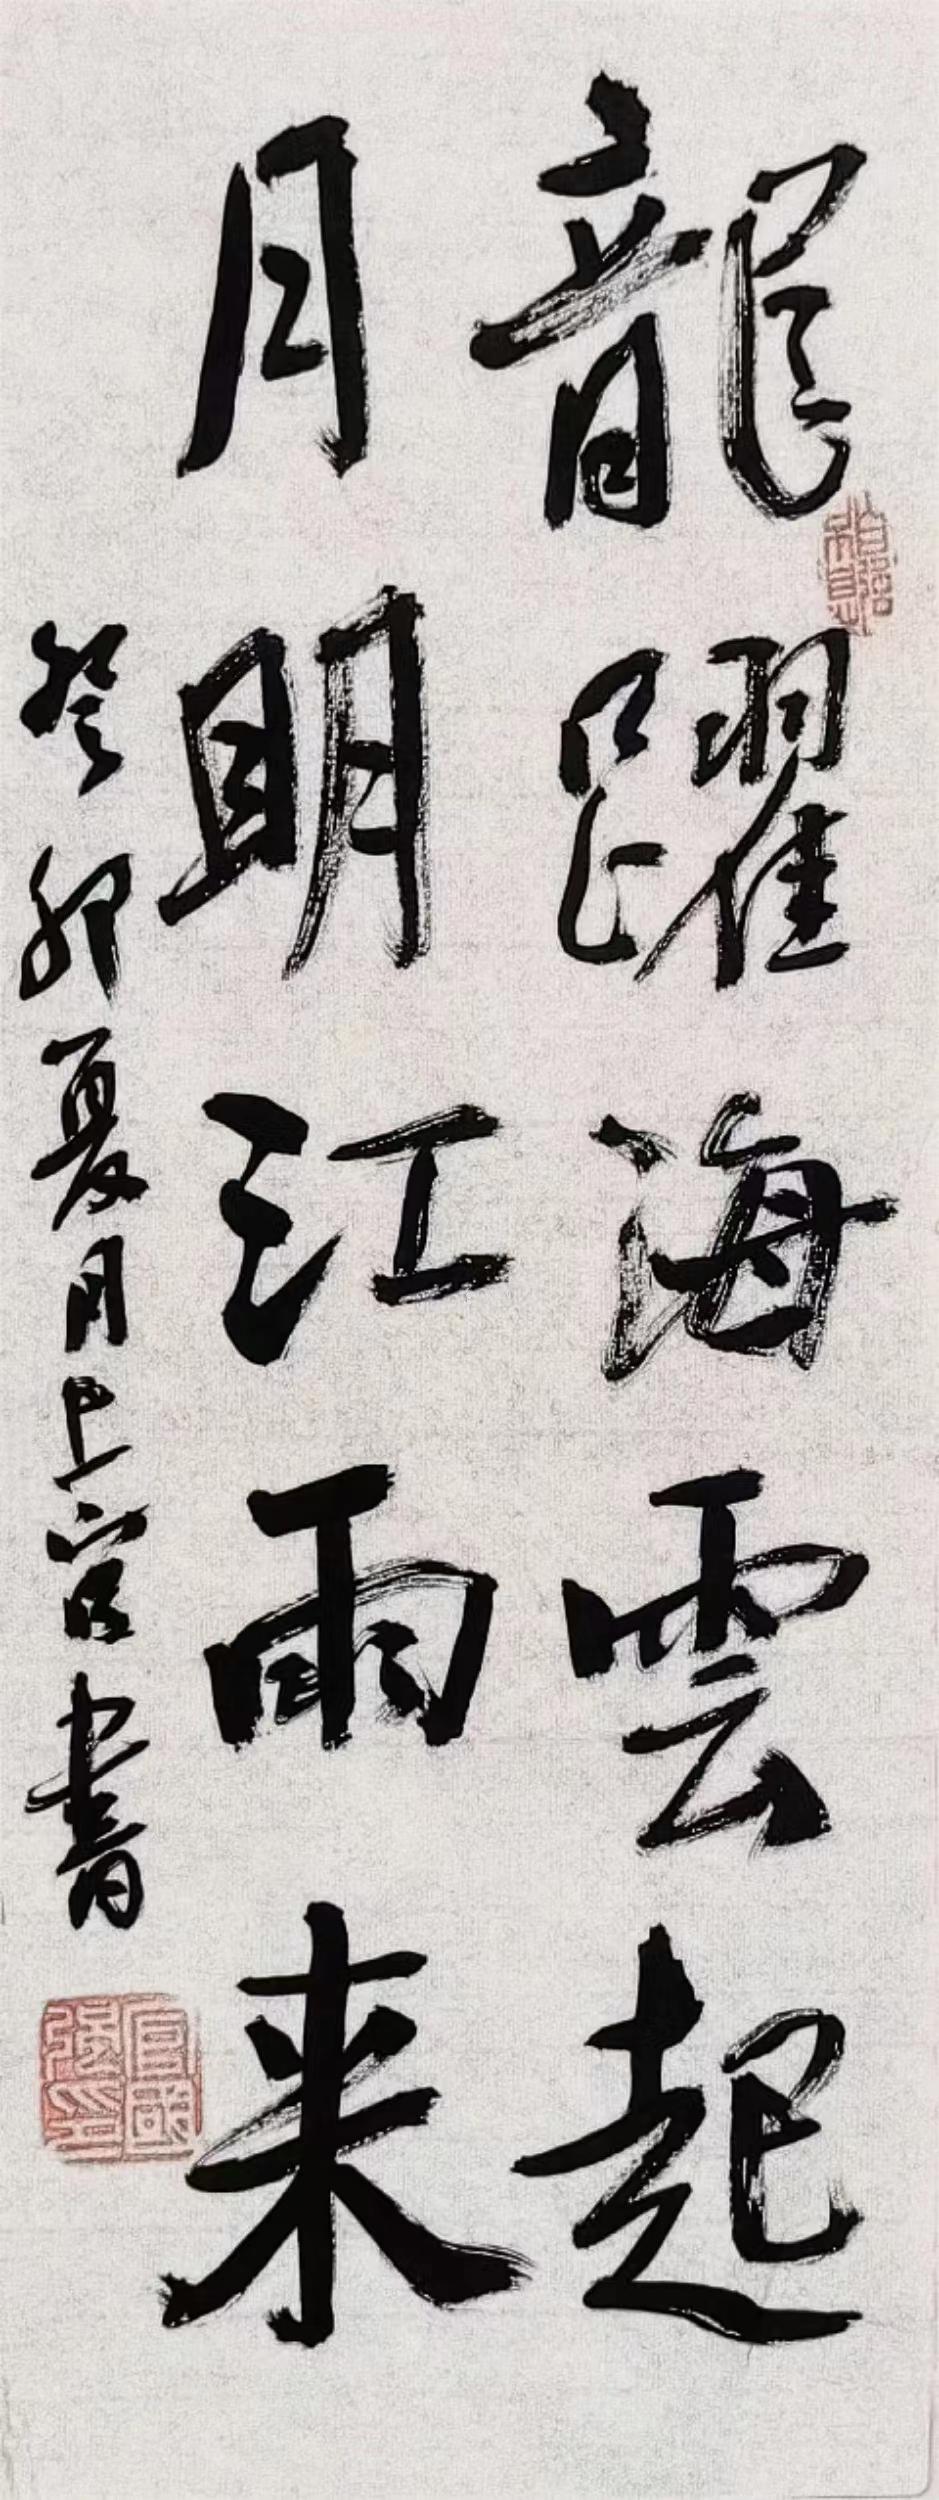 龍躍海雲起
月明江雨来
癸卯夏月上官書